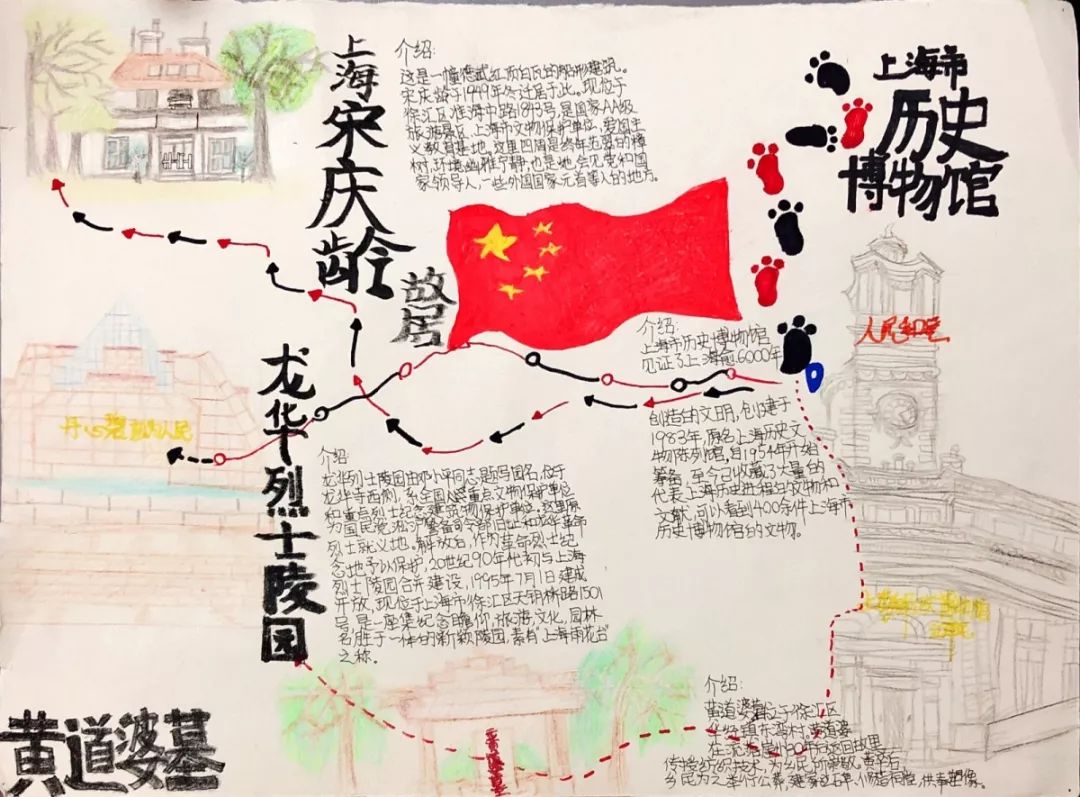 上海宋庆龄
故居
介绍:
这是一幢德式红顶白瓦的船形建筑。
宋庆龄于1949年冬迁居于此。现位于
徐汇区淮海中路1843号,是国家AA级
旅游景区、上海市文物保护单位,爱国主
义教育基地。这里四周是终年苍翠的樟
树,环境幽雅宁静,也是她会见党和国
家领导人,一些外国国家元首等人的地方。
上海市
历史
博物馆
介绍:
上海市历史博物馆
见证了上海愈6000年
创造的文明,创建于
1983年,原名上海历史文
物陈列馆,自1954年开始
筹备,至今已收藏了大量的
代表上海历史进程的文物和
文献,可以看到400余件上海市
历史博物馆的文物。
龙华烈士陵园
丹心碧血为人民
介绍
龙华烈士陵园由邓小平同志题写园名,位于
龙华寺西侧,系全国人民重点文物保护单位
和重点烈士纪念建筑物保护单位,这里原
为国民党淞沪警备司令部旧址和龙华革命
烈士就义地。解放后,作为革命烈士纪
念地予以保护,20世纪90年代初与上海
烈士陵园合并建设,1995年7月1日建成
开放,现位于上海市徐汇区天钥桥路1501
号,是一座集纪念瞻仰,旅游,文化,园林
名胜于一体的新颖陵园,素有“上海雨花台”
之称。
黄道婆墓
介绍:
黄道婆墓位于徐汇区
华泾镇东湾村,黄道婆
传授纺织技术,为乡民所崇敬,黄卒后,